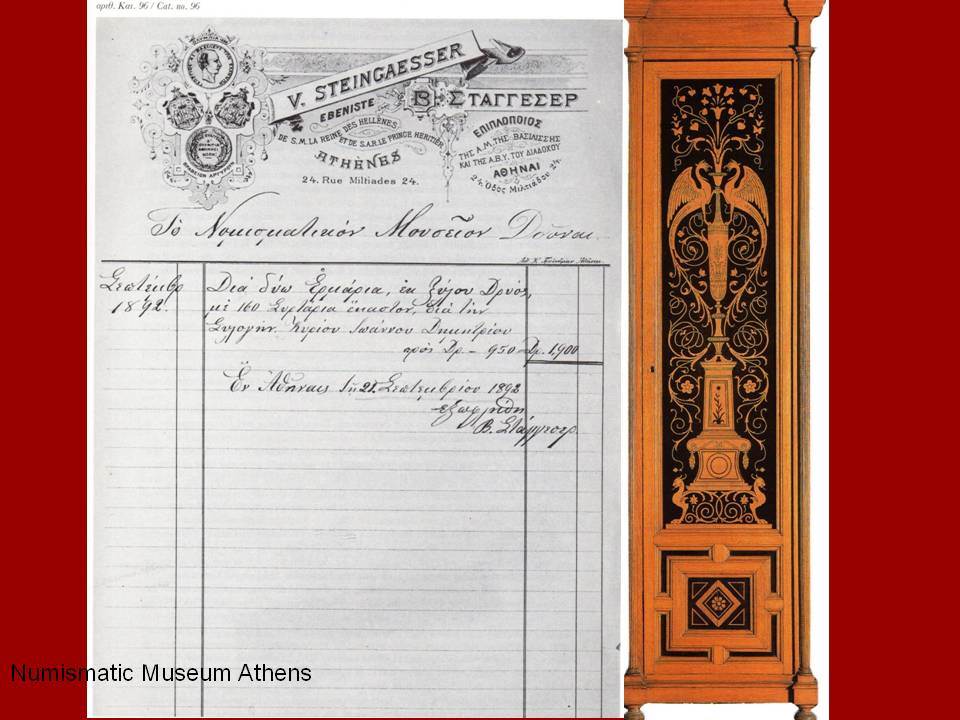 αριθ. Κατ. 96 / Cat. no. 96
V. STEINGAESSER
EBENISTE
DE S.M. LA REINE DES HELLÈNES
ET DE S.A.R. LE PRINCE HERITIER
ATHÈNES
24. Rue Miltiades 24.
Β. ΣΤΑΓΓΕΣΕΡ
ΕΠΙΠΛΟΠΟΙΟΣ
ΤΗΣ Α.Μ. ΤΗΣ ΒΑΣΙΛΙΣΣΗΣ
ΚΑΙ ΤΗΣ Α.Β.Υ. ΤΟΥ ΔΙΑΔΟΧΟΥ
ΑΘΗΝΑΙ
24. Ὁδὸς Μιλτιάδου 24.
Τὸ Νομισματικὸν Μουσεῖον
Σεπτέμβρ
1892.
Διὰ δύω Ἑρμάρια, ἐκ ξύλου Δρυὸς,
μὲ 160 Συρτάρια ἕκαστον, διὰ τὴν
Συλογὴν Κυρίου Ἰωάννου Δημητρίου
πρὸς Δρ - 950 - Δρ. 1,900
Ἐν Ἀθήναις τῇ 21 Σεπτεμβρίου 1892
ἐξωφλήθη
Β. Στάγγεσερ.
Numismatic Museum Athens